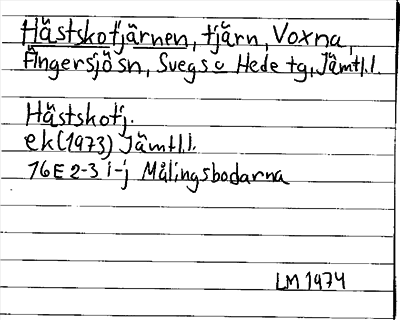 Hästskotjärnen, tjärn, Voxna,
Ängersjö sn, Svegs o Hede tg, Jämtl.l.
Hästskotj.
ek (1973) Jämtl.l.
16E 2-3 i-j Målingsbodarna
LM 1974